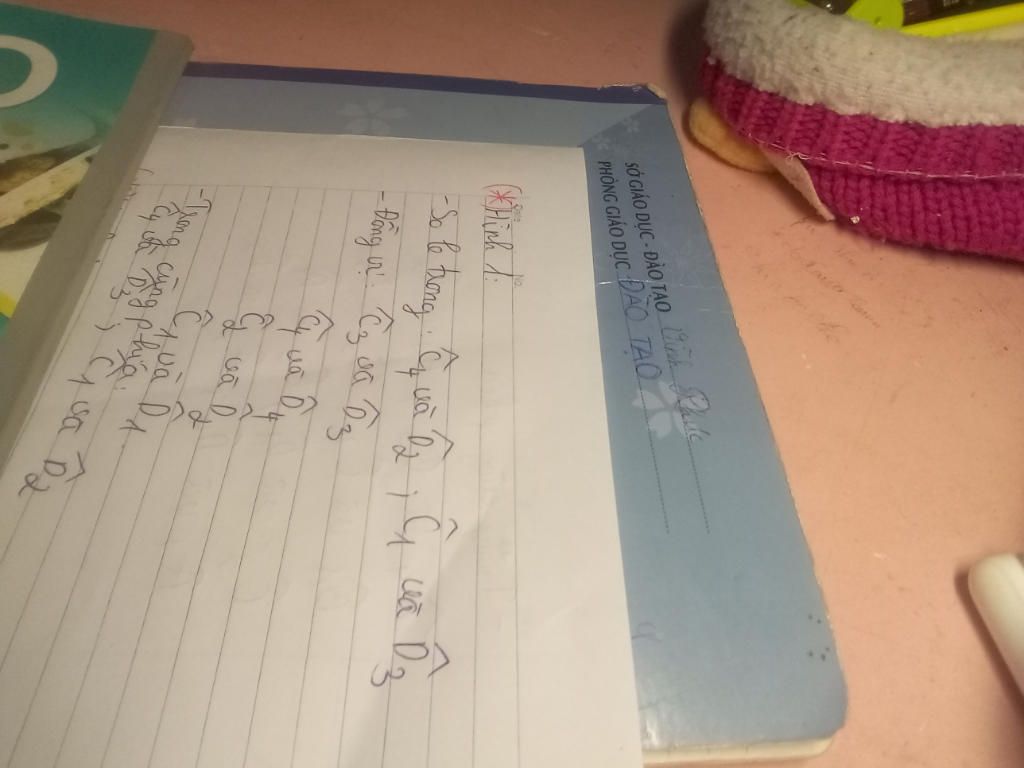 SỞ GIÁO DỤC - ĐÀO TẠO
PHÒNG GIÁO DỤC ĐÀO TẠO
(*) Hình 1:
- So le trong: Ĉ4 và D̂2 ; Ĉ1 và D̂3
- Đồng vị: Ĉ3 và D̂3
Ĉ4 và D̂4
Ĉ2 và D̂2
Ĉ1 và D̂1
- Trong cùng phía:
Ĉ4 và D̂3 ; Ĉ1 và D̂2